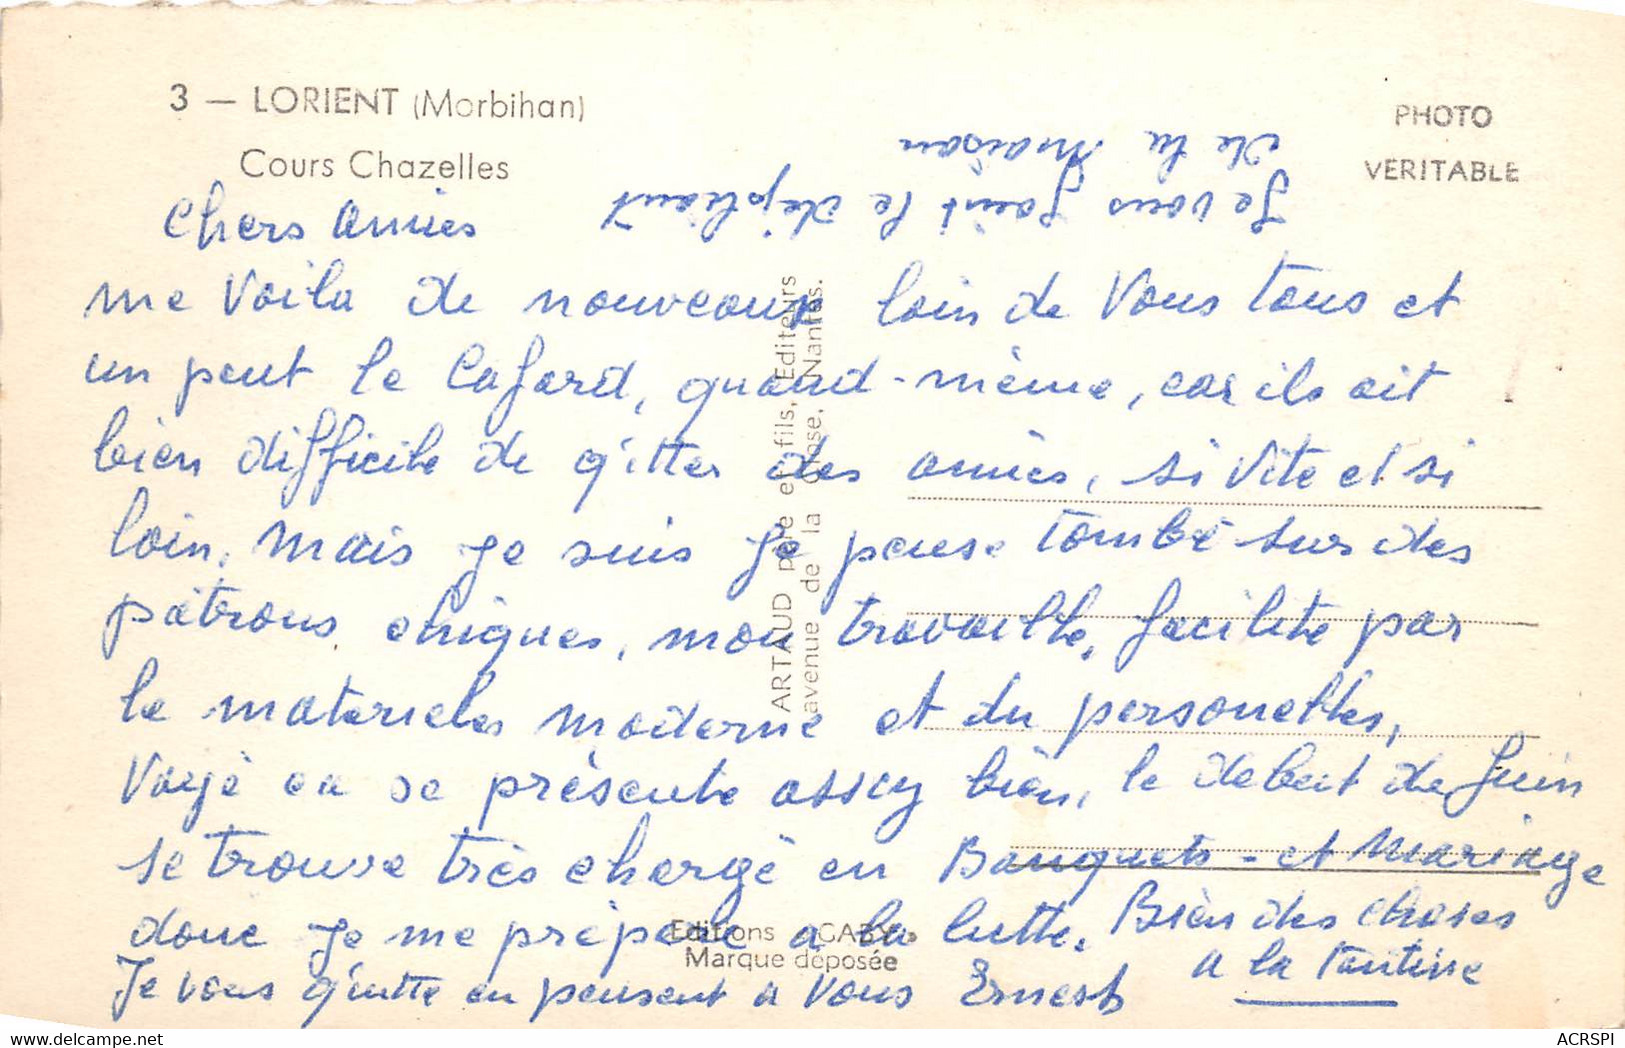 3 — LORIENT (Morbihan)
Cours Chazelles
PHOTO
VERITABLE
Je vous joint le dépliant
de la Maison
Chers Amies
me Voila de nouveaux loin de Vous tous et
un peut le Cafard, quand-même, car ils ait
bien difficile de q'itter des amies, si Vite et si
loin, Mais je suis je pense tombé sur des
patrons chiques, mon travaille, facilité par
le materieles moderne et du personelles,
Voryé ca se présente assey bien, le debeut de Juin
se trouve très chargé en Banquets - et Mariage
donc je me prépare a la lutte. Bien des choses
a la Tantine
Je vous q'uitte en pensent a Vous Ernest
ARTAUD père et fils, Editeurs
avenue de la Close, Nantes.
Editions GABY
Marque déposée
www.delcampe.net
ACRSPI